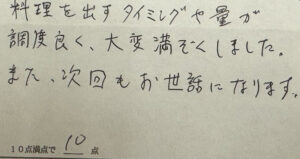 料理を出すタイミングや量が
調度良く、大変満ぞくしました。
また、次回もお世話になります。
10点満点で 10 点